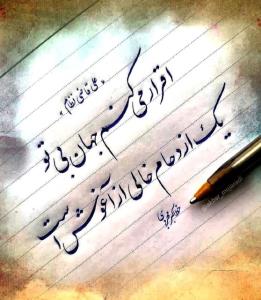 "علی قاضی نظام"
اقرار می کنم جهان بی تو
یک ازدحام خالی از آغوش است